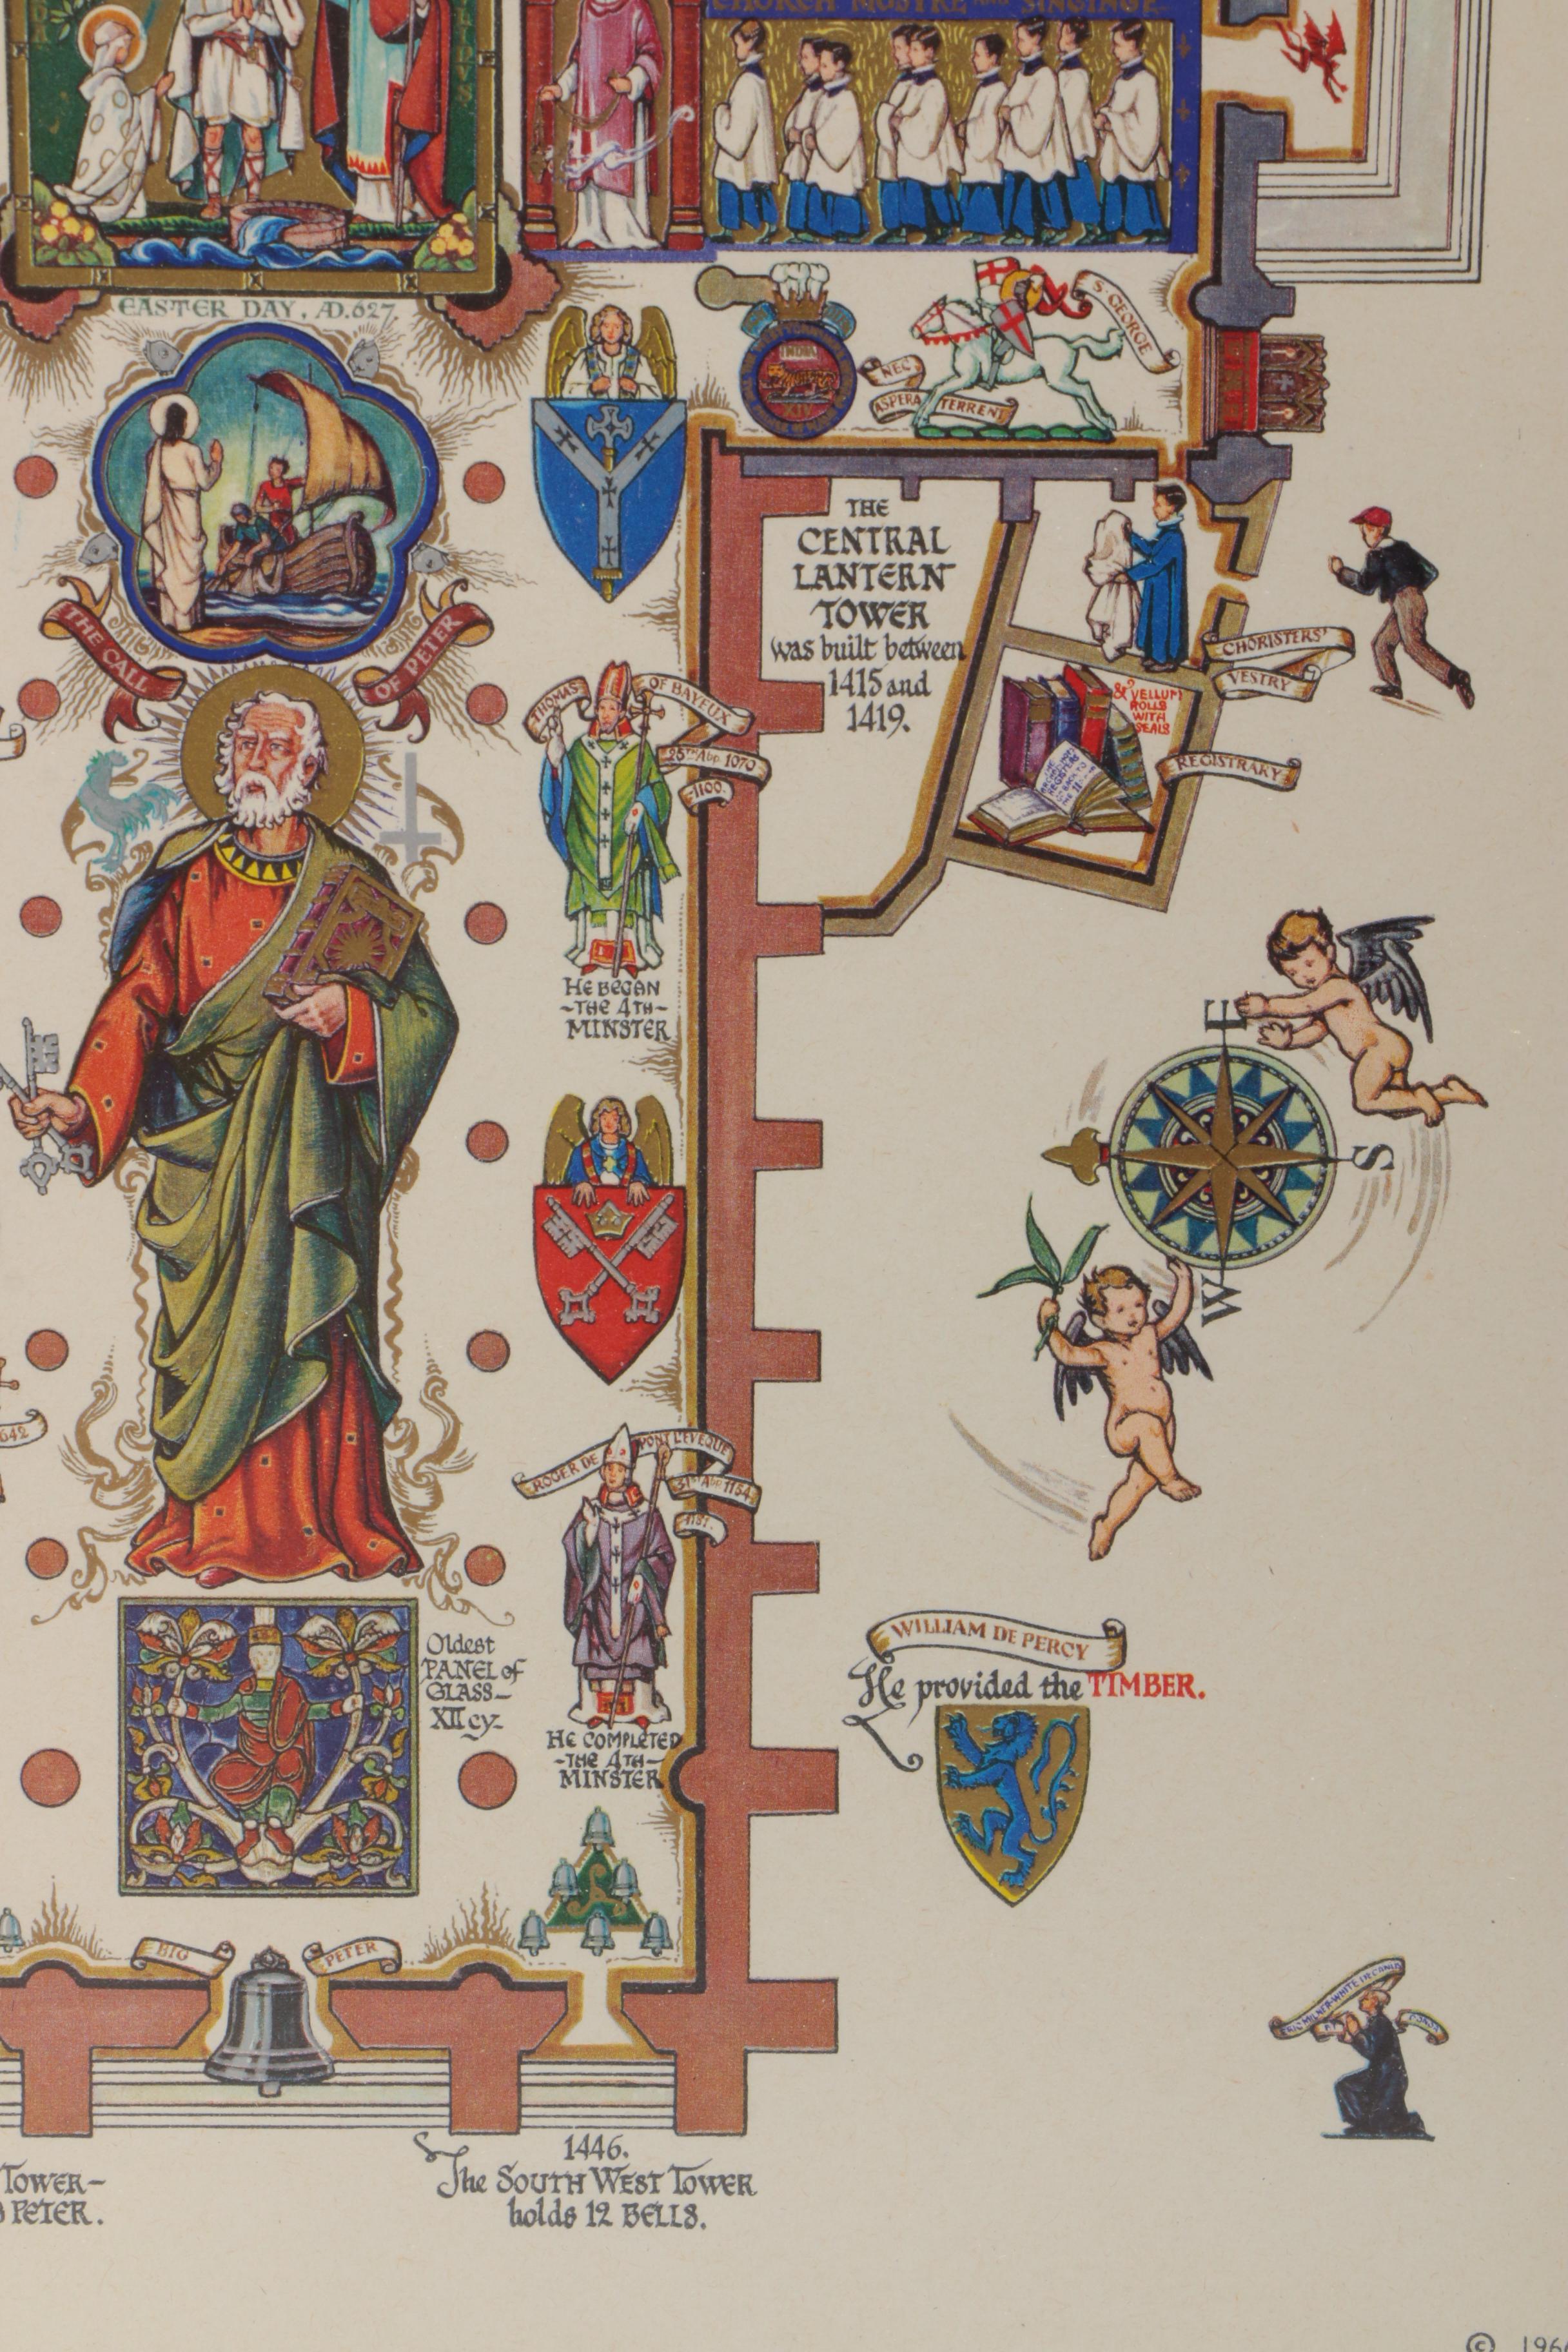 CHURCH MUSYKE AND SINGINGE
EASTER DAY, AD.627.
THE CALL
OF PETER
INDIA
XIV
NEC
ASPERA
TERRENT
S. GEORGE
THE
CENTRAL
LANTERN
TOWER
was built between
1415 and
1419.
CHORISTERS'
VESTRY
& VELLUM
ROLLS
WITH
SEALS
REGISTRARY
THOMAS
OF BAYEUX
25TH Abp. 1070
-1100.
HE BEGAN
-THE 4TH-
MINSTER
E
S
W
642
ROGER DE
PONT L'EVEQUE
31ST Abp 1154
1181.
HE COMPLETED
-THE 4TH-
MINSTER
Oldest
PANEL of
GLASS-
XII cy-
WILLIAM DE PERCY
He provided the TIMBER.
BIG
PETER
ERIC MILNER-WHITE DECANUS
ET
TOWER-
PETER.
1446.
The SOUTH WEST TOWER
holds 12 BELLS.